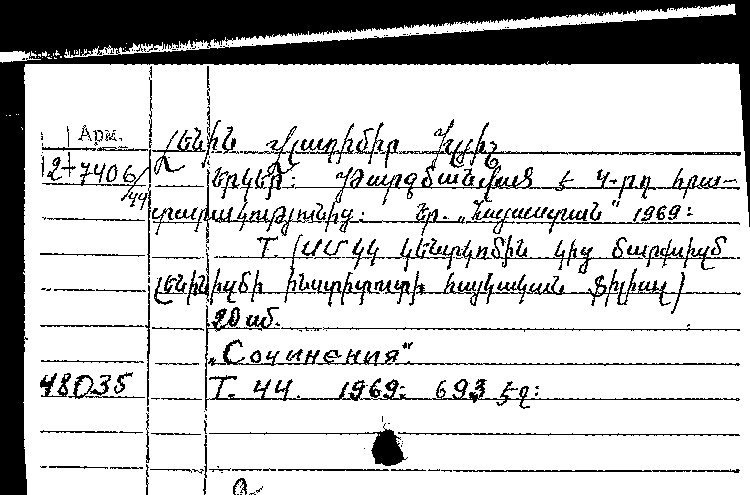 Арм.
Լենին Վլադիմիր Իլյիչ
2+7406/44
Երկեր: Թարգմանված է 4-րդ հրա-
տարակությունից: Եր. „Հայաստան" 1969:
T. (ՍՄԿԿ կենտկոմին կից մարքսիզմ
լենինիզմի ինստիտուտի հայկական ֆիլիալ)
20 սմ.
„Сочинения".
48035 Т. 44. 1969: 693 էջ: